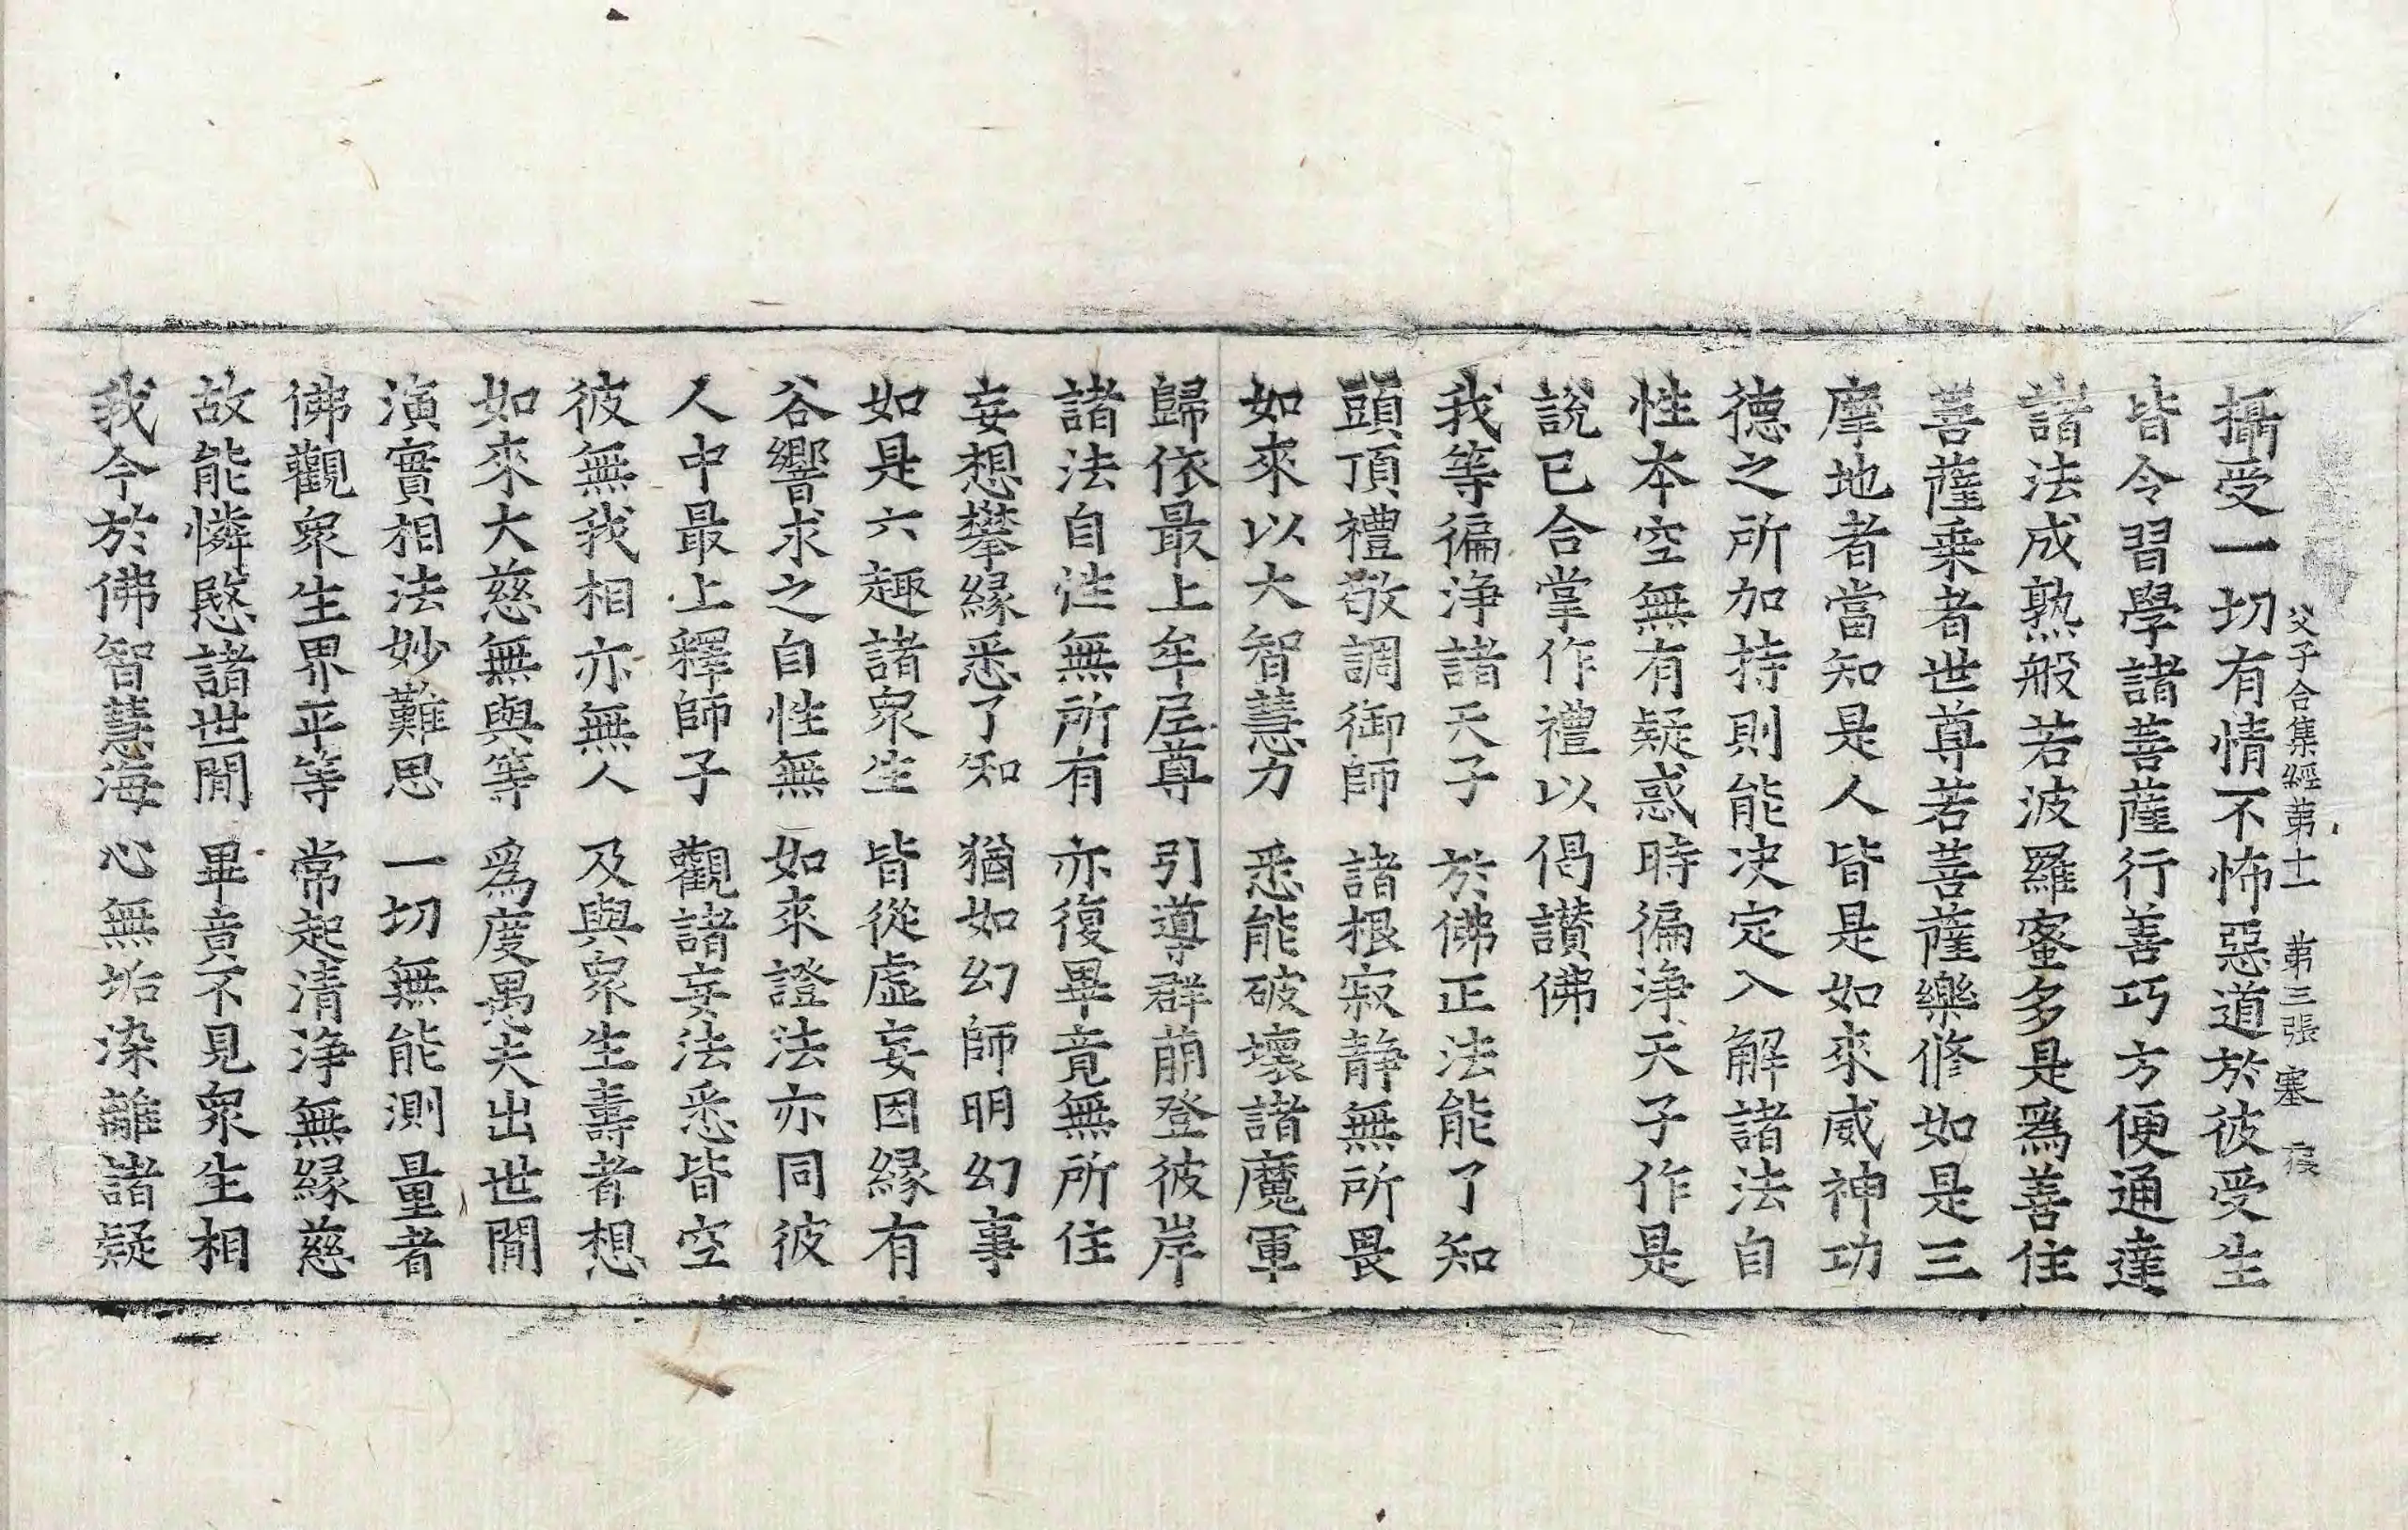 父子合集經第十一 第三張 塞
攝受一切有情不怖惡道於彼受生
皆令習學諸菩薩行善巧方便通達
諸法成熟般若波羅蜜多是爲善住
菩薩乗者世尊若菩薩樂修如是三
摩地者當知是人皆是如來威神功
德之所加持則能决定入解諸法自
性本空無有疑惑時徧淨天子作是
說已合掌作禮以偈讃佛
我等徧淨諸天子 於佛正法能了知
頭頂禮敬調御師 諸根寂静無所畏
如來以大智慧力 悉能破壞諸魔軍
歸依最上牟尼尊 引導群萠登彼岸
諸法自性無所有 亦復畢竟無所住
妄想攀緣悉了知 猶如幻師明幻事
如是六趣諸衆生 皆從虛妄因緣有
谷響求之自性無 如來證法亦同彼
人中最上釋師子 觀諸妄法悉皆空
彼無我相亦無人 及與衆生壽者想
如來大慈無與等 爲度愚夫出世閒
演實相法妙難思 一切無能測量者
佛觀衆生界平等 常起清淨無緣慈
故能憐愍諸世閒 畢竟不見衆生相
我今於佛智慧海 心無垢染離諸疑